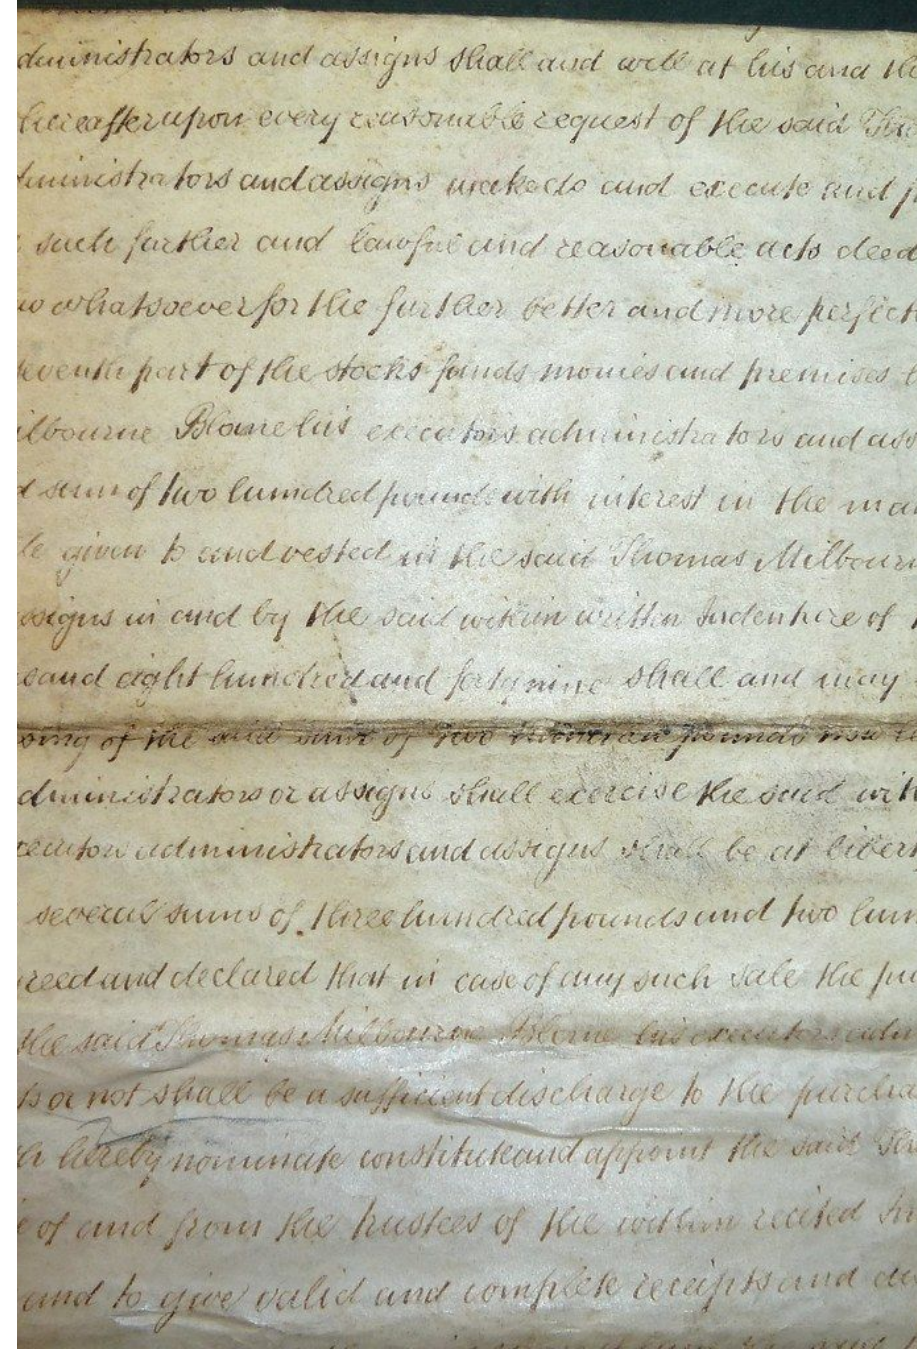 dministrators and assigns shall and will at his and the
hereafter upon every reasonable request of the said Tho
ministrators and assigns make do and execute and p
such further and lawful and reasonable acts deed
whatsoever for the further better and more perfect
seventh part of the stocks funds monies and premises
ilbourne Blane his executors administrators and ass
d sum of two hundred pounds with interest in the man
le given to and vested in the said Thomas Milbourn
ssigns in and by the said within written Indenture of
sand eight hundred and forty nine shall and may
of the said sum of two hundred pounds now
dministrators or assigns shall exercise the said with
xecutors administrators and assigns shall be at libert
several sums of three hundred pounds and two hun
reed and declared that in case of any such sale the pu
the said Thomas Milbourne Blane his executors adm
ts or not shall be a sufficient discharge to the purcha
hereby nominate constitute and appoint the said Tho
of and from the trustees of the within recited In
and to give valid and complete receipts and